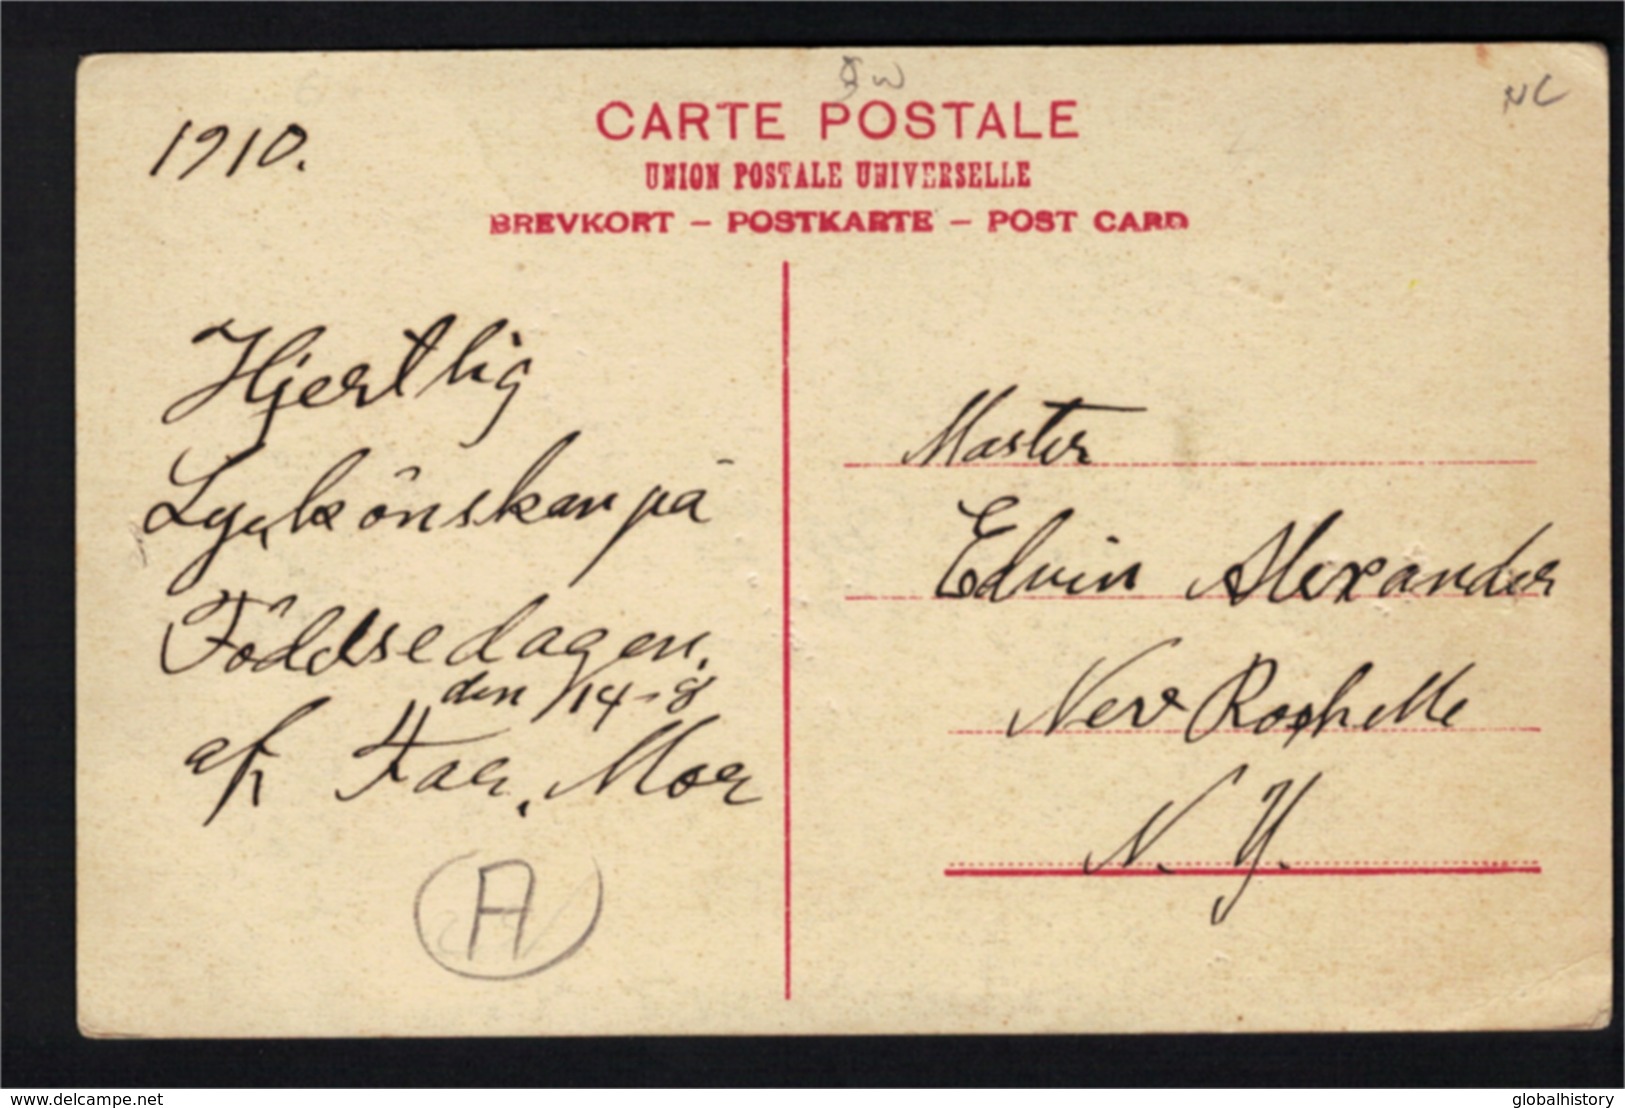 1910.
CARTE POSTALE
UNION POSTALE UNIVERSELLE
BREVKORT – POSTKARTE – POST CARD
NC
Hjertlig
Lyckönskan på
Föddsedagen.
den 14-8
af Far, Mor
A
Master
Edwin Alexander
New Rochelle
N. Y.
www.delcampe.net
globalhistory